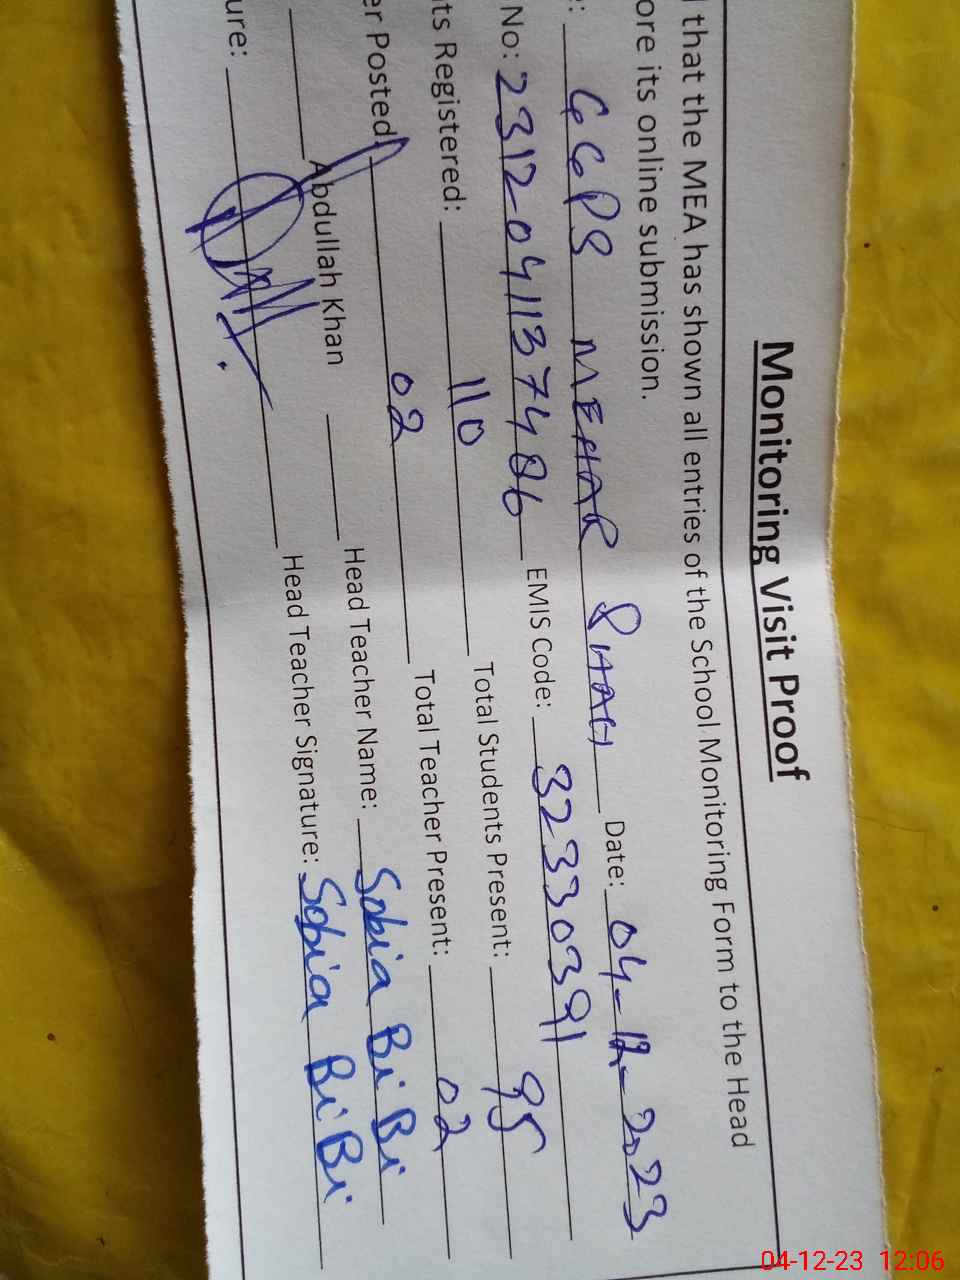 Monitoring Visit Proof
that the MEA has shown all entries of the School Monitoring Form to the Head
ore its online submission.
: GGPS MEHAR SHAH Date: 04-12-2023
No: 2312041137486 EMIS Code: 32330391
ts Registered: 110 Total Students Present: 95
er Posted: 02 Total Teacher Present: 02
Abdullah Khan Head Teacher Name: Sobia BiBi
ure: Head Teacher Signature: Sobia BiBi
04-12-23 12:06